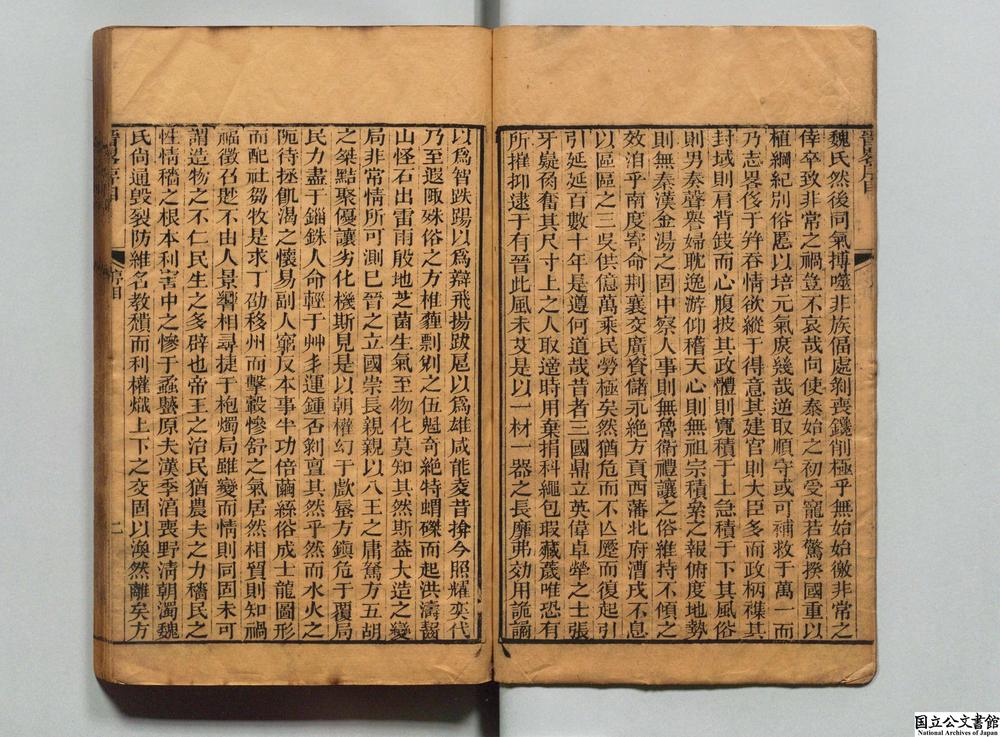 魏氏然後同氣搏噬非族偪處剝喪鑱削極乎無始始徼非常之
倖卒致非常之禍豈不哀哉向使泰始之初受寵若驚揆國重以
植綱紀別俗慝以培元氣庶幾哉逆取順守或可補救于萬一而
乃志畧伐于幷吞情欲縱于得意其建官則大臣多而政柄襍其
封域則肩背鈘而心腹披其政體則寬積于上急積于下其風俗
則男奏聲譽婦耽逸游仰稽天心則無祖宗積絫之報俯度地勢
則無秦漢金湯之固中察人事則無魯衛禮讓之俗維持不傾之
效洎乎南度寄命荆襄交廣資儲永絶方貢西藩北府漕戍不息
以區區之三吳供億萬乘民勞極矣然猶危而不亾蹷而復起引
引延延百數十年是遵何道哉昔者三國鼎立英偉卓犖之士張
牙嶷角奮其尺寸上之人取適時用棄捐科繩包瑕藏薉唯恐有
所摧抑逮于有晉此風未艾是以一材一器之長靡弗効用詭譎
以爲智跌踼以爲辯飛揚跋扈以爲雄咸能夌昔揜今照耀奕代
乃至遐陬殊俗之方椎薶剽剟之伍魁奇絶特蝟磔而起洪濤
山怪石出雷雨殷地芝菌生氣至物化莫知其然斯益大造之變
局非常情所可測巳晉之立國崇長親親以八王之庸駑方五胡
之桀黠聚優讓劣化機斯見是以朝權幻于歃脣方鎭危于覆局
民力盡于錙銖人命輕于艸
運鍾否剝亶其然乎然而水火之
阨待拯飢渴之懷易副人窮反本事半功倍繭絲俗成士龍圖形
而配社芻牧是求丁劭移州而擊轂慘舒之氣居然相貿則知禍
福徵召匙不由人景響相尋捷于枹燭局雖變而情則同固未可
謂造物之不仁民生之多辟也帝王之治民猶農夫之力穡民之
性情穡之根本利害中之慘于蟊蠥原夫漢季滔喪野淸朝濁魏
氏尙通毁裂防維名教穨而利權熾上下之交固以渙然離矣方
晉畧序目
序目
二